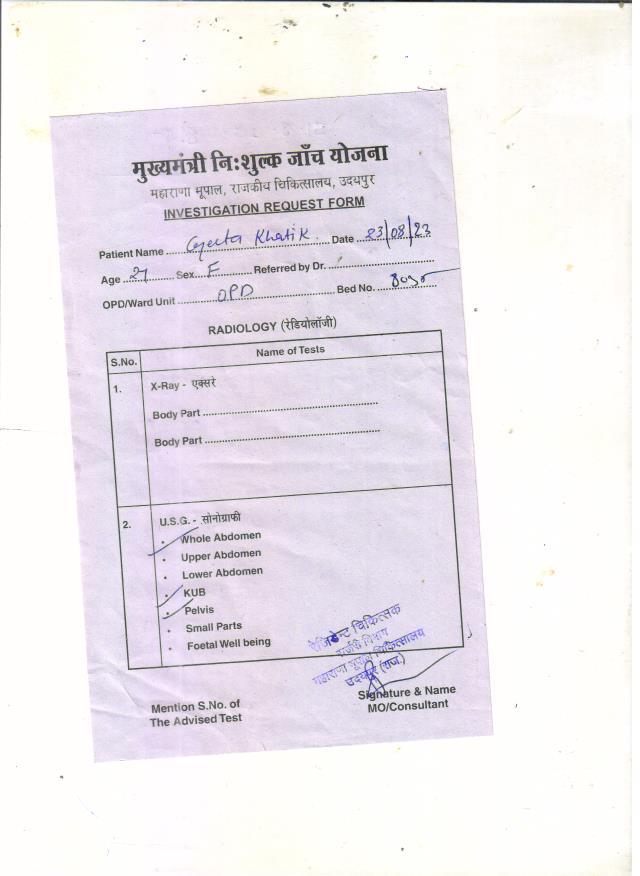 मुख्यमंत्री नि:शुल्क जाँच योजना
महाराणा भूपाल, राजकीय चिकित्सालय, उदयपुर
INVESTIGATION REQUEST FORM
Patient Name ........ Geeta Khatik ........ Date ........ 23/08/23
Age ........ 27 ........ Sex ........ F ........ Referred by Dr. ........
OPD/Ward Unit ........ OPD ........ Bed No. ........
RADIOLOGY (रेडियोलॉजी)
S.No. Name of Tests
1. X-Ray - एक्सरे
Body Part ........
Body Part ........
2. U.S.G. - सोनोग्राफी
• Whole Abdomen
• Upper Abdomen
• Lower Abdomen
• KUB
• Pelvis
• Small Parts
• Foetal Well being
रेजिडेन्ट चिकित्सक
सर्जरी विभाग
महाराणा भूपाल चिकित्सालय
उदयपुर (राज.)
Mention S.No. of
The Advised Test
Signature & Name
MO/Consultant